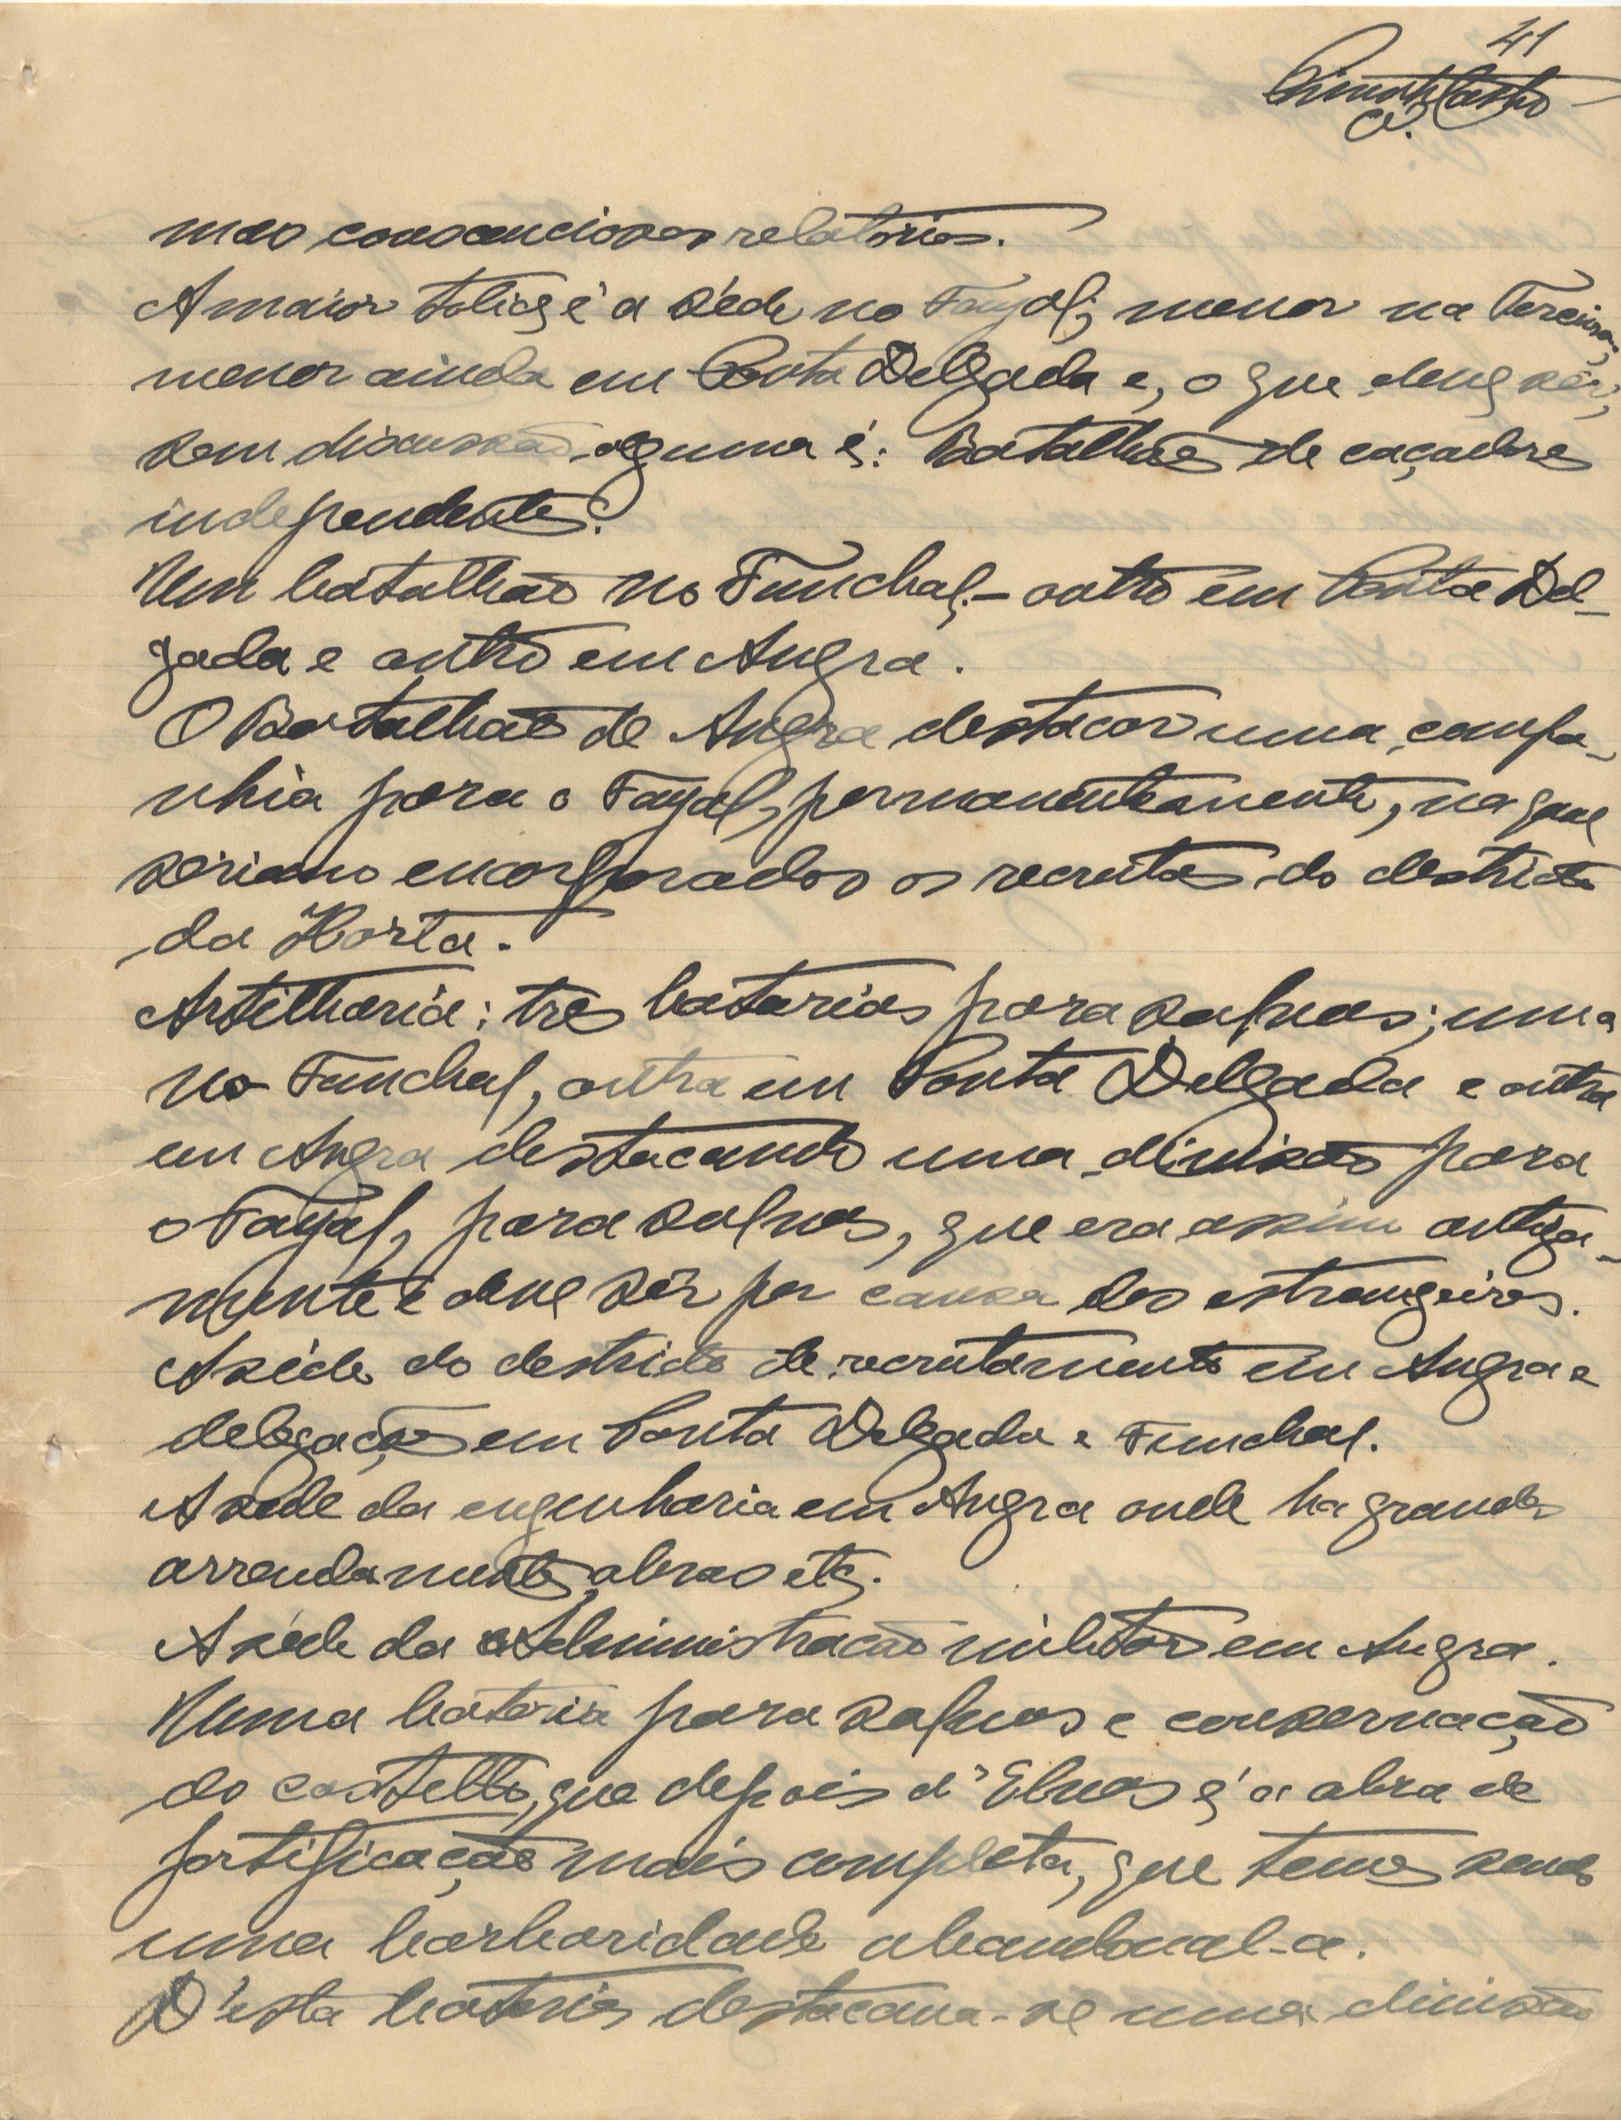 41
meus conscenciosos relatorios.
A maior tolice é a séde no Fayal; menor na Terceira;
menor ainda em Ponta Delgada e, o que deve ser,
sem discussão alguma é: Batalhões de caçadores
independentes.
Um batalhão no Funchal, – outro em Ponta Del-
gada e outro em Angra.
O Batalhão de Angra destacar uma compa-
nhia para o Fayal, permanentemente, na qual
seriam encorporados os recrutas do destricto
da Horta.
Artilharia: tres batarias para salvas; uma
no Funchal, outra em Ponta Delgada e outra
em Angra destacando uma divisão para
o Fayal, para salvas, que era assim antiga-
mente e deve ser por causa dos estrangeiros.
A séde do destricto de recrutamento em Angra e
delegações em Ponta Delgada e Funchal.
A séde da engenharia em Angra onde ha grandes
arrendamentos, obras etc.
A séde da Administração militar em Angra.
Uma bataria para salvas e conservação
do castello, que depois d'Elvas é a obra de
fortificação mais completa, que temos sendo
uma barbaridade abandonal-a.
D'esta bataria destacava-se uma divisão